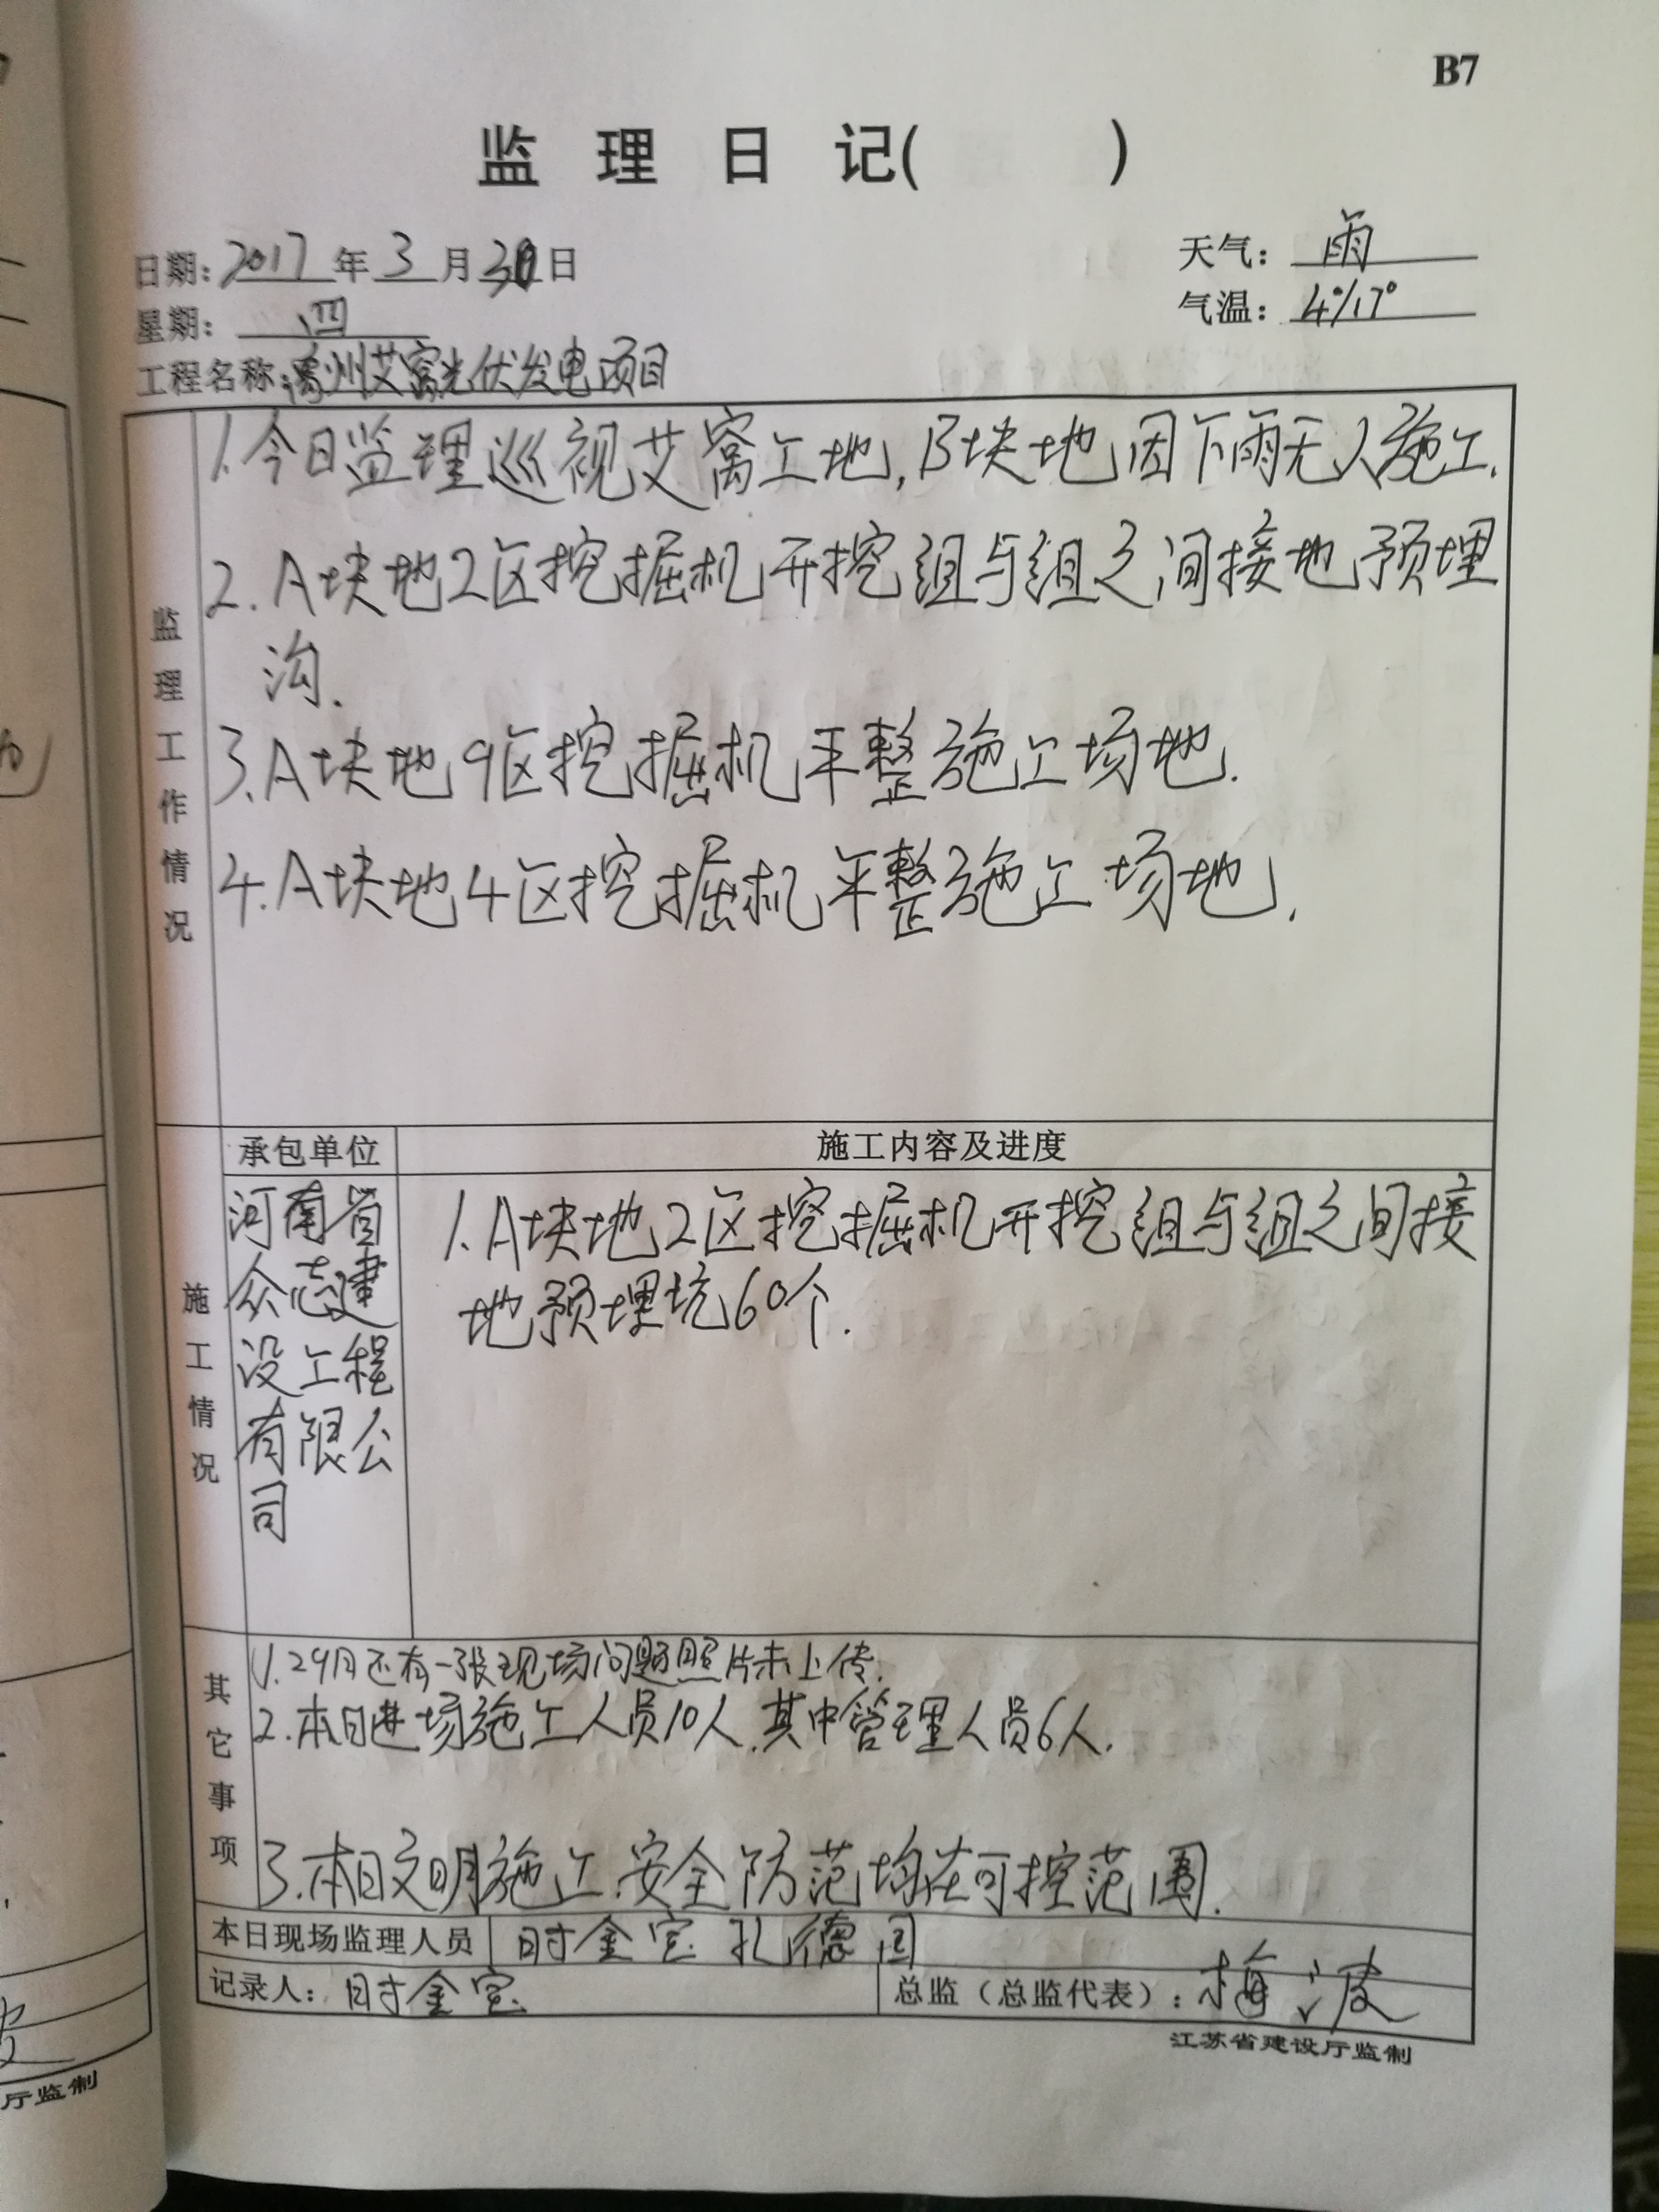 B7
监 理 日 记( )
日期: 2017 年 3 月 30 日
天气: 雨
星期: 四
气温: 4°/17°
工程名称: 禹州艾窝光伏发电项目
监理工作情况
1.今日监理巡视艾窝工地,B块地因下雨无人施工.
2.A块地2区挖掘机开挖组与组之间接地预埋
沟.
3.A块地9区挖掘机平整施工场地.
4.A块地4区挖掘机平整施工场地.
施工情况
承包单位
施工内容及进度
河南省
众志建
设工程
有限公
司
1.A块地2区挖掘机开挖组与组之间接
地预埋坑60个.
其它事项
1.29日还有一张现场问题照片未上传.
2.本日进场施工人员10人.其中管理人员6人.
3.本日文明施工.安全防范均在可控范围.
本日现场监理人员 时金宝 孔德国
记录人: 时金宝
总监(总监代表): 梅波
江苏省建设厅监制
厅监制